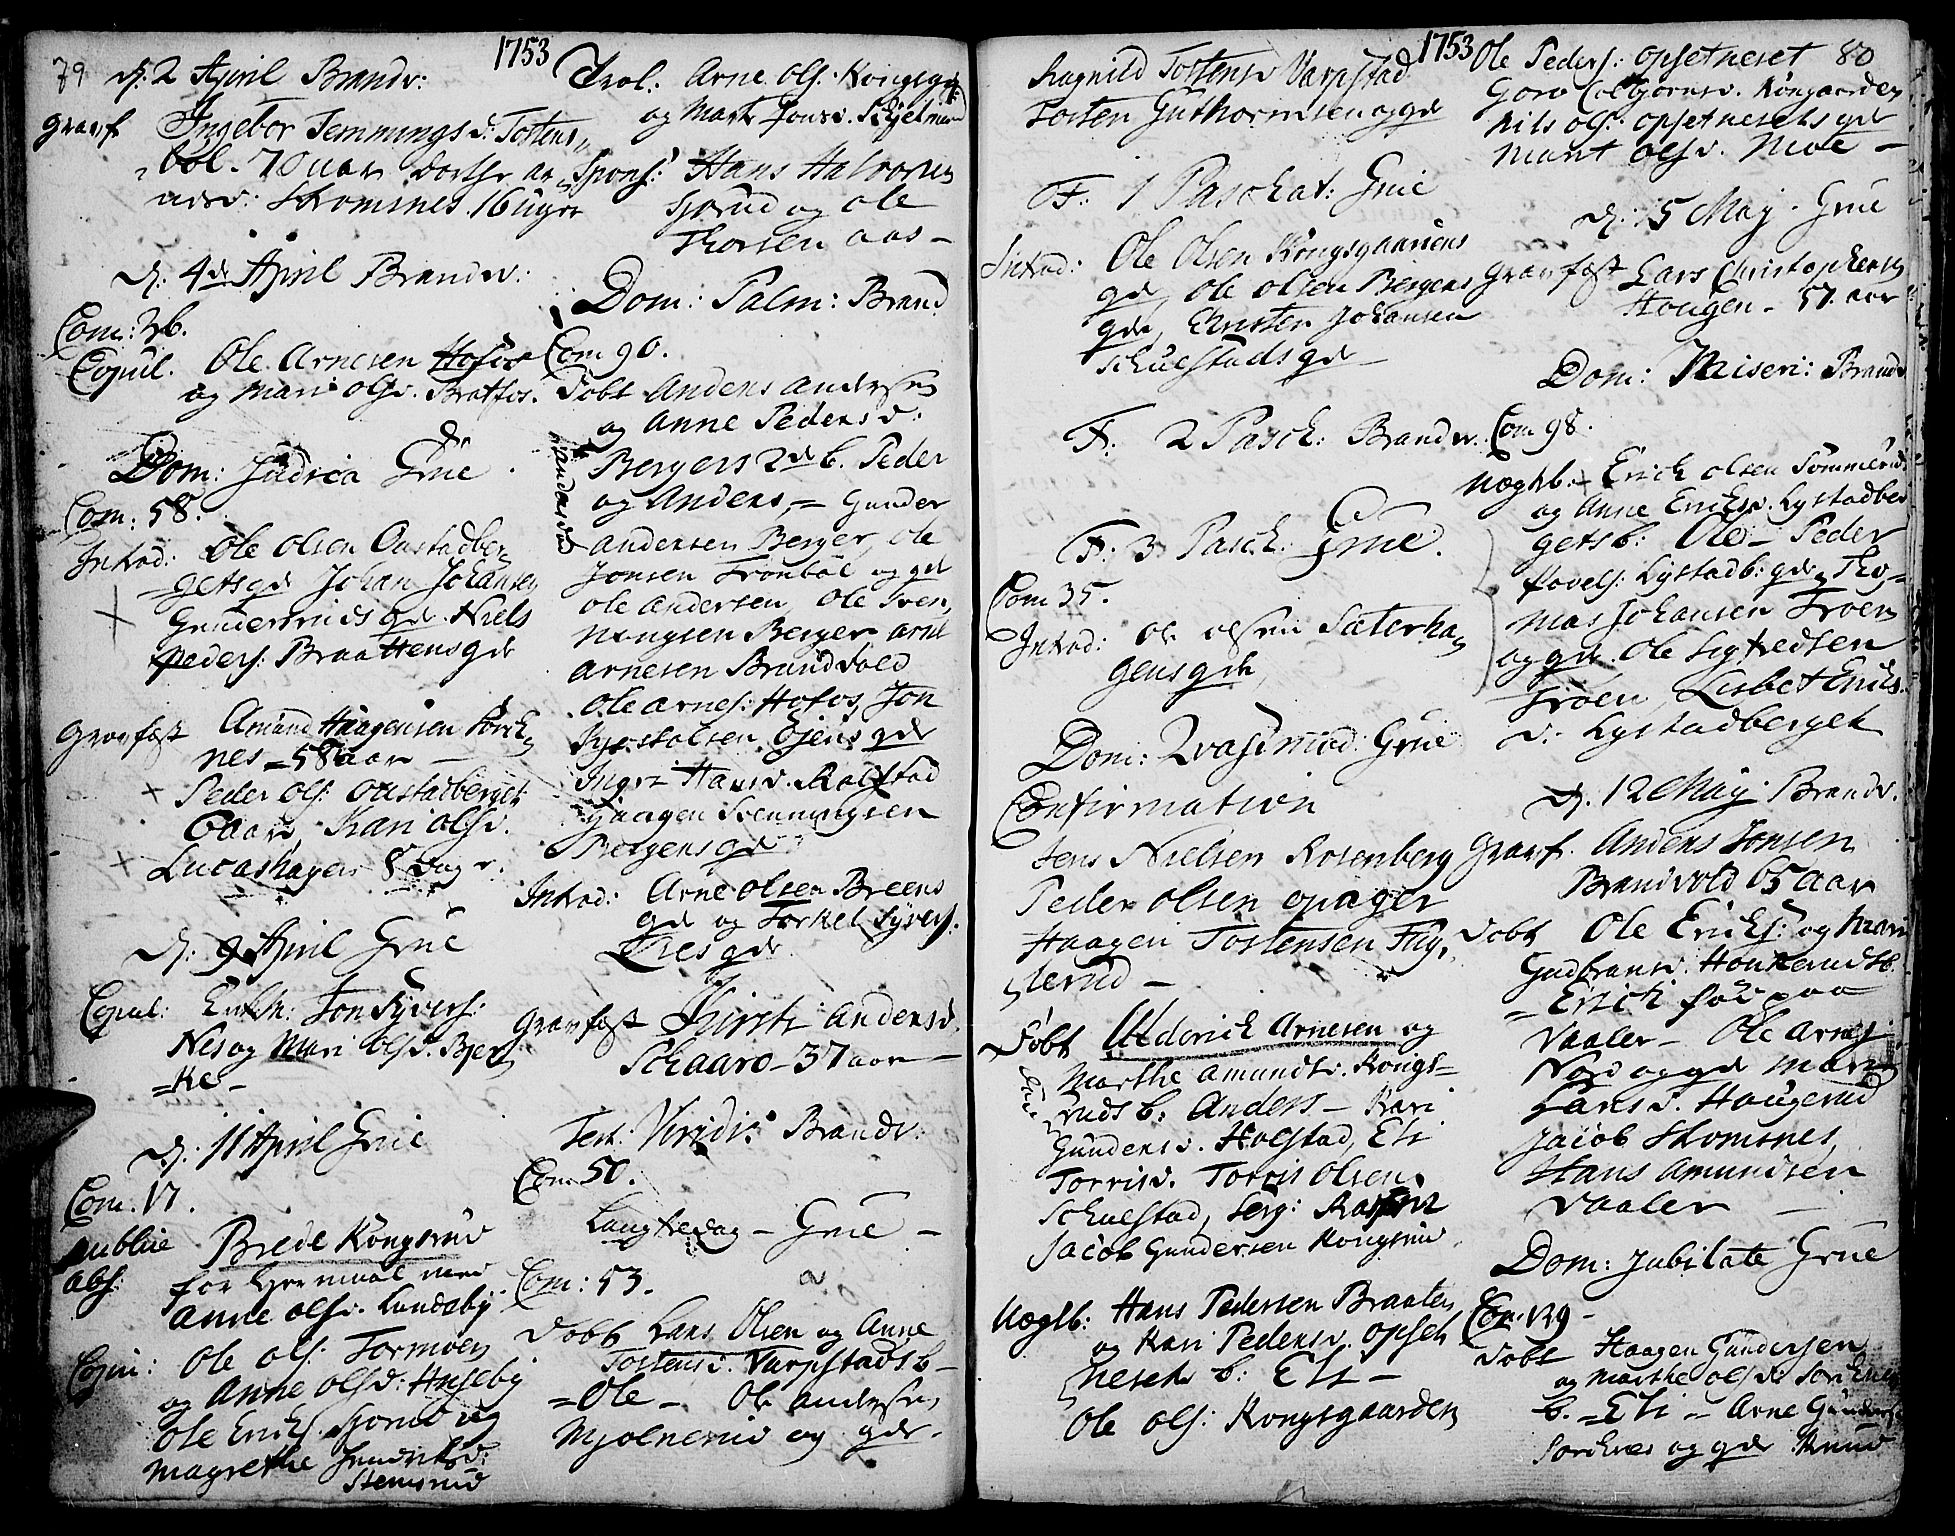 79
1753
d: 2 April Brandv:
gravf Ingebor Temmings d: Tostens
bøl. 70 aar dorthe ar
nesd: Strømsnes 16 uger
d: 4de April Brandv:
Com: 26.
Copul. Ole Arnesen Hofos
og Mari olsd. Bratfos.
Dom: Judica Grue
Com: 58.
Introd: Ole Olsen Oustadber
getsgd Johan Johansen
Gundersruds gd. Niels
peders: Braattens gd
Gravfæst Amund Haagensen
nes = 58 aar
Peder ols: oustadberget
6 aar, Kari olsd.
Lucashagen 8 dage.
d: 9 April Grue
Copul: Enkm: Jon Syvers:
Nes og Mari olsd. Bjer
=ke -
d: 11 April Grue
Com. 17.
publice Brede Kongsrud
abs: for Lejermaal med
Anne olsd. Lundeby
Copu: Ole ols: Tormoen
og Anne olsd: Huseby
Ole Ericks. Sjorud og
Magrethe Hendriksd:
Stemsrud
Trol: Arne ols: Kongsg
og Marte Jonsd. Skjelmer
Spons: Hans Halvorsen
Sjorud og Ole
Thorsen aas -
Dom: Palm: Brand
Com 90.
Døbt Anders andersen
og Anne Pedersd:
Bergers 2de b. Peder
og Anders, = Gunder
andersen Berger, ole
Jonsen Tronbøl og gd
ole andersen, Ole Sven,
nungsen Berger arne
arnesen Brandvold
Ole arnes: Hofos, Jon
Kjostolsen Øjens gd
Ingri Hansd. Rolstad
Haagen Svenningsen
Bergens gd
Introd: Arne olsen Breens
gd og Torkel Syvers.
Lies gd
Gravfæst Kirsti Andersd.
Schaaro - 37 aar -
Fest: Viridi: Brandv:
Com 50.
Langfredag - Grue -
Com: 53.
Døbt Lars Olsen og Anne
Tostensd. Varpstads b -
= Ole - Ole andersen
Mjolnerud og gd.
1753
Ragnild Tostensd Varpstad
Tosten Guthormsen og gd
F: 1 Paschat: Grue
Introd: Ole Olsen Kongsgaardens
gd, ole olsen Bergens
gd, Christen Johansen
Schulstads gd -
F: 2 Pasch: Brandv.
F: 3 Pasch: Grue.
Com 35.
Introd: ole olsen Sæterha
gens gd
Dom: Qvasimod: Grue
Confirmation
Jens Nielsen Rosenberg
Peder olsen opager
Haagen Tostensen Fug,
lerud -
Døbt Ulderick Arnesen og
Marthe Amundsd. Kongs=
ruds b: Anders - Kari
Gundersd. Holstad, Eli
Torrisd. Toris olsen
Schulstad, Serg:
Jacob Gundersen Kongsrud
Uægtb: Hans Pedersen Braaten
og Kari Pedersd. opset
neset b: Eli -
Ole ols: Kongsgaarden
Ole Peders: opsetneset 80
Goro Colbjornsd. Kongaarden
Nils ols: opsetnesets gd
Marit olsd. Moe -
d: 5 May. Grue
Gravfæst Lars Christophersen
Hougen - 57 aar
Dom: Miseri: Brandv
Com 98.
Uægtb: = Erich olsen Sommerud
og Anne Ericksd. Lystadber
gets b: Ole - Peder
Povels: Lystadb: gd, Tho=
mas Johansen Troen
og gd. Ole Sigfredsen
Troen, Lisbet Ericks
d: Lystadberget
d. 12 May Brandv.
Gravf. Anders Jonsen
Brandvold 65 aar
Døbt Ole Ericks: og Mari
Gudbransd. Houkeruds b.
= Erich fød paa
Vaaler - Ole Arnes
Nord og gd Mari
Larsd. Hougerud
Jacob Stromsnes
Hans Amundsen
Vaaler -
Dom: Jubilate Grue
Com 129 -
Døbt Haagen Gundersen
og Marthe olsd:
b. = Eli - Arne Gunders
Sorknes og gd Knud